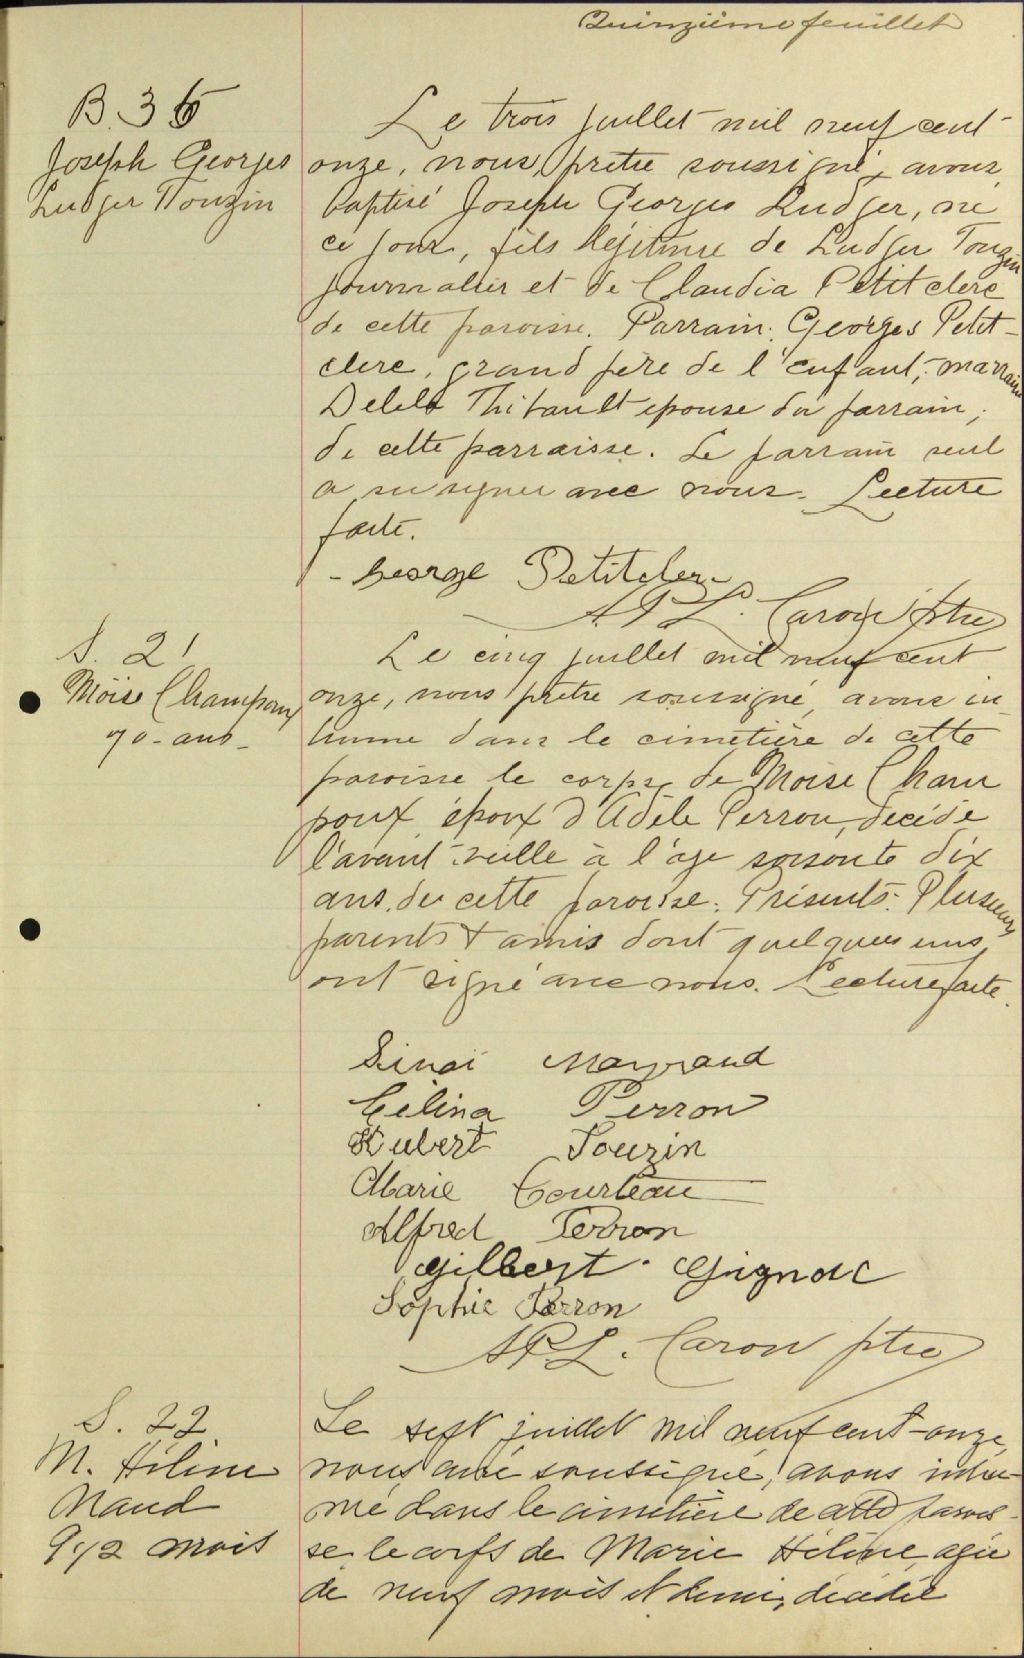 Quinzième feuillet
B. 36
Joseph Georges
Ludger Touzin
Le trois juillet mil neuf cent
onze, nous, prêtre soussigné, avons
baptisé Joseph Georges Ludger, né
ce jour, fils légitime de Ludger Touzin
journalier et de Claudia Petitclerc
de cette paroisse. Parrain: Georges Petit-
clerc, grand père de l'enfant; marraine
Thibault épouse du parrain,
de cette parraisse. Le parrain seul
a su signer avec nous. Lecture
faite.
- George Petitclerc
A.P.L. Caron ptre
S. 21
Moïse Champoux
70 - ans -
Le cinq juillet mil neuf cent
onze, nous prêtre soussigné, avons in
humé dans le cimetière de cette
paroisse le corps de Moïse Cham
poux, époux d'Adèle Perron, décédé
l'avant-veille à l'age soisonte dix
ans, de cette paroisse. Présents: Plusieurs
parents & amis dont quelques uns
ont signé avec nous. Lecture faite.
Sinaï Mayrand
Célina Perron
Hubert Touzin
Marie Courteau
Alfred Perron
Gilbert Gignac
Sophie Perron
A.P.L. Caron ptre
S. 22
M. Hélène
Naud
9 1/2 mois
Le sept juillet mil neuf cent-onze,
nous, curé soussigné, avons inhu-
mé dans le cimetière de cette parois-
se, le corps de Marie Hélène, agée
de neuf mois et demi, décédée